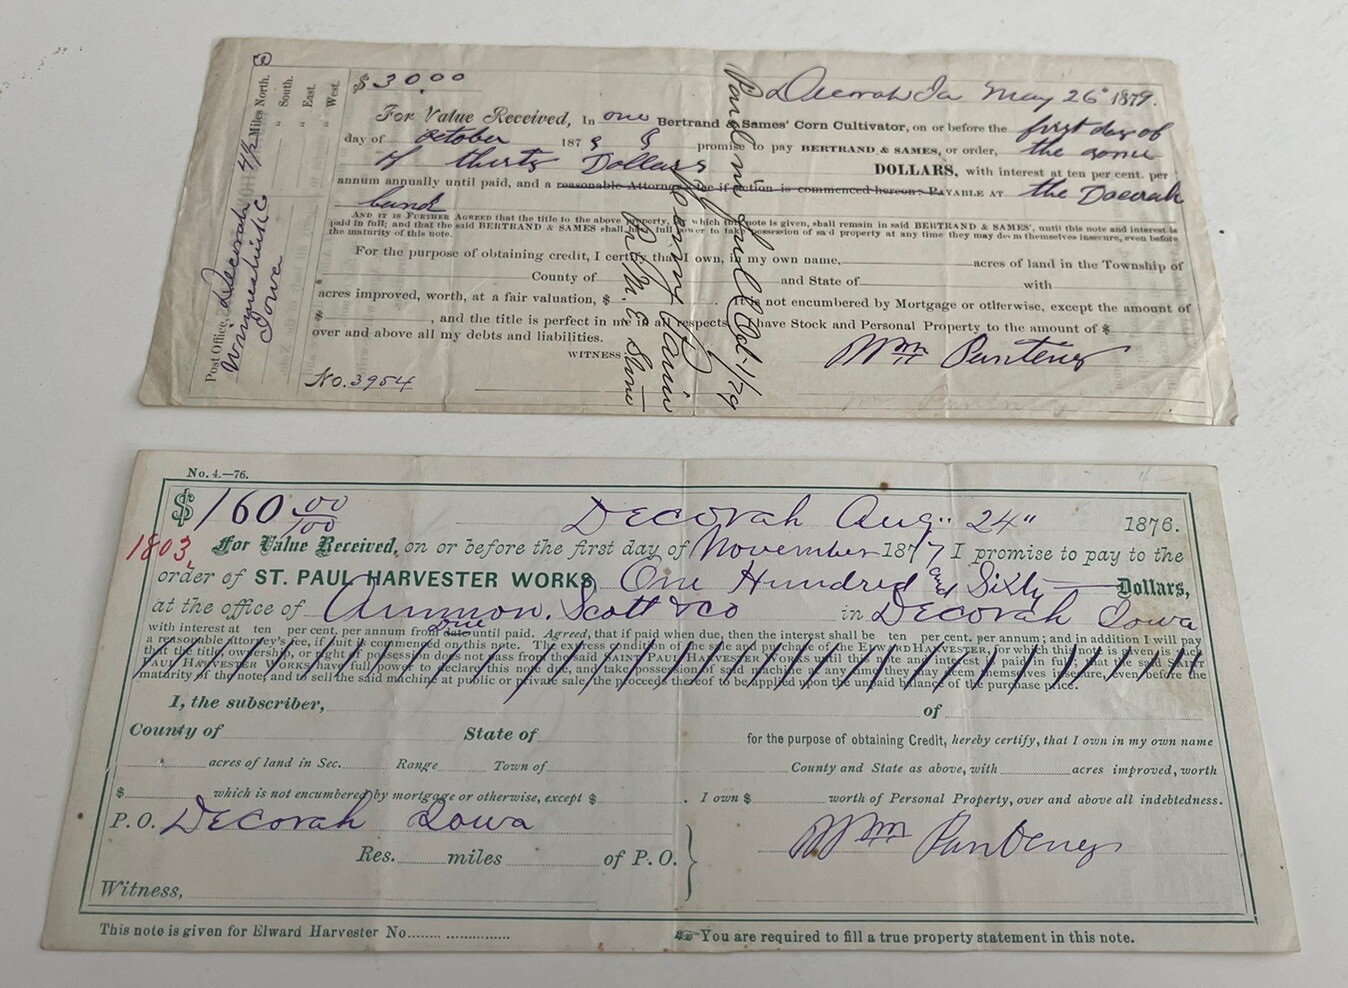 $30.00 Decorah Ia May 26" 1879.
For Value Received, In one Bertrand & Sames' Corn Cultivator, on or before the first day of
day of October 1879 promise to pay BERTRAND & SAMES, or order, the
of thirty Dollars DOLLARS, with interest at ten per cent. per
annum annually until paid, and a reasonable Attorney fee if action is commenced hereon: PAYABLE AT the Decorah
bank
AND IT IS FURTHER AGREED that the title to the above property, which this note is given, shall remain in said BERTRAND & SAMES', until this note and interest is
paid in full; and that the said BERTRAND & SAMES shall have full power to take possession of said property at any time they may deem themselves insecure, even before
the maturity of this note.
For the purpose of obtaining credit, I certify that I own, in my own name, acres of land in the Township of
County of and State of with
acres improved, worth, at a fair valuation, $ is not encumbered by Mortgage or otherwise, except the amount of
$ , and the title is perfect in me in all respects. I have Stock and Personal Property to the amount of $
over and above all my debts and liabilities.
WITNESS Wm
No. 3954
Post Office, Decorah 4 1/2 Miles North.
" South.
" East.
" West.
Winneshiek C
Iowa
Paid in full Oct 1/79
No. 4.—76.
$160 00/100 Decorah Aug. 24" 1876.
1803
For Value Received, on or before the first day of November 1877 I promise to pay to the
order of ST. PAUL HARVESTER WORKS One Hundred and Sixty Dollars,
at the office of Ammon, Scott & Co in Decorah Iowa
Due
with interest at ten per cent. per annum from date until paid. Agreed, that if paid when due, then the interest shall be ten per cent. per annum; and in addition I will pay
a reasonable Attorney's fee, if suit is commenced on this note. The express condition of the sale and purchase of the ELWARD HARVESTER, for which this note is given is
that the title, ownership, or right of possession does not pass from the said SAINT PAUL HARVESTER WORKS until this note and interest is paid in full; that the said SAINT
PAUL HARVESTER WORKS have full power to declare this note due, and take possession of said machine at any time they may deem themselves insecure, even before the
maturity of the note, and to sell the said machine at public or private sale, the proceeds thereof to be applied upon the unpaid balance of the purchase price.
I, the subscriber, of
County of State of for the purpose of obtaining Credit, hereby certify, that I own in my own name
acres of land in Sec. Range Town of County and State as above, with acres improved, worth
$ which is not encumbered by mortgage or otherwise, except $ . I own $ worth of Personal Property, over and above all indebtedness.
P.O. Decorah Iowa Wm
Res. miles of P.O.
Witness,
This note is given for Elward Harvester No. You are required to fill a true property statement in this note.